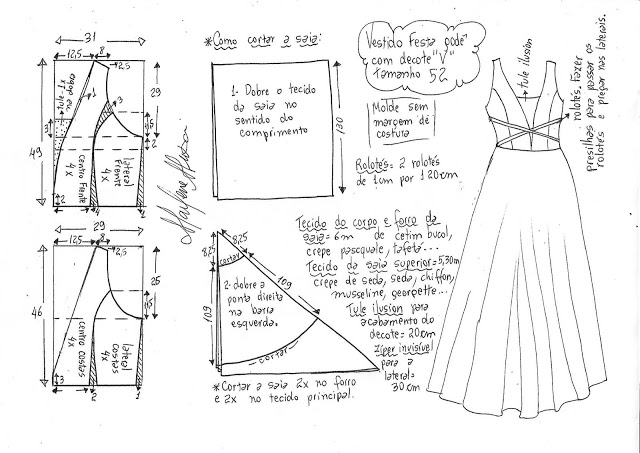 31
12,5
8
2,5
29
3
1
3
1,5
2
49
2
centro Frente
4x
lateral
Frente
4x
4
2
29
12,5
8
2,5
25
1,5
46
3
centro costas
4x
lateral
costas
4x
2
1
Marlene Mukai
*Como cortar a saia:
1- Dobre o tecido
da saia no
sentido do
comprimento
130
8,25
8,25
cortar
109
109
2- dobre a
ponta direita
na barra
esquerda.
cortar
*Cortar a saia 2x no forro
e 2x no tecido principal.
Vestido Festa podê
com decote "V"
Tamanho 52
Molde sem
margem de
costura
Rolotês = 2 rolotês
de 1cm por 120cm
Tecido do corpo e forro da
saia = 6m de cetim bucol,
crepe pasquale, tafetá...
Tecido da saia superior = 5,30m
crepe de seda, seda, chiffon,
musseline, georgette...
Tule ilusion para
acabamento do
decote = 20cm
Zíper invisível
para a
lateral =
30cm
tule ilusión
rolotês. Fazer
presilhas para passar os
rolotês e pregar nas laterais.